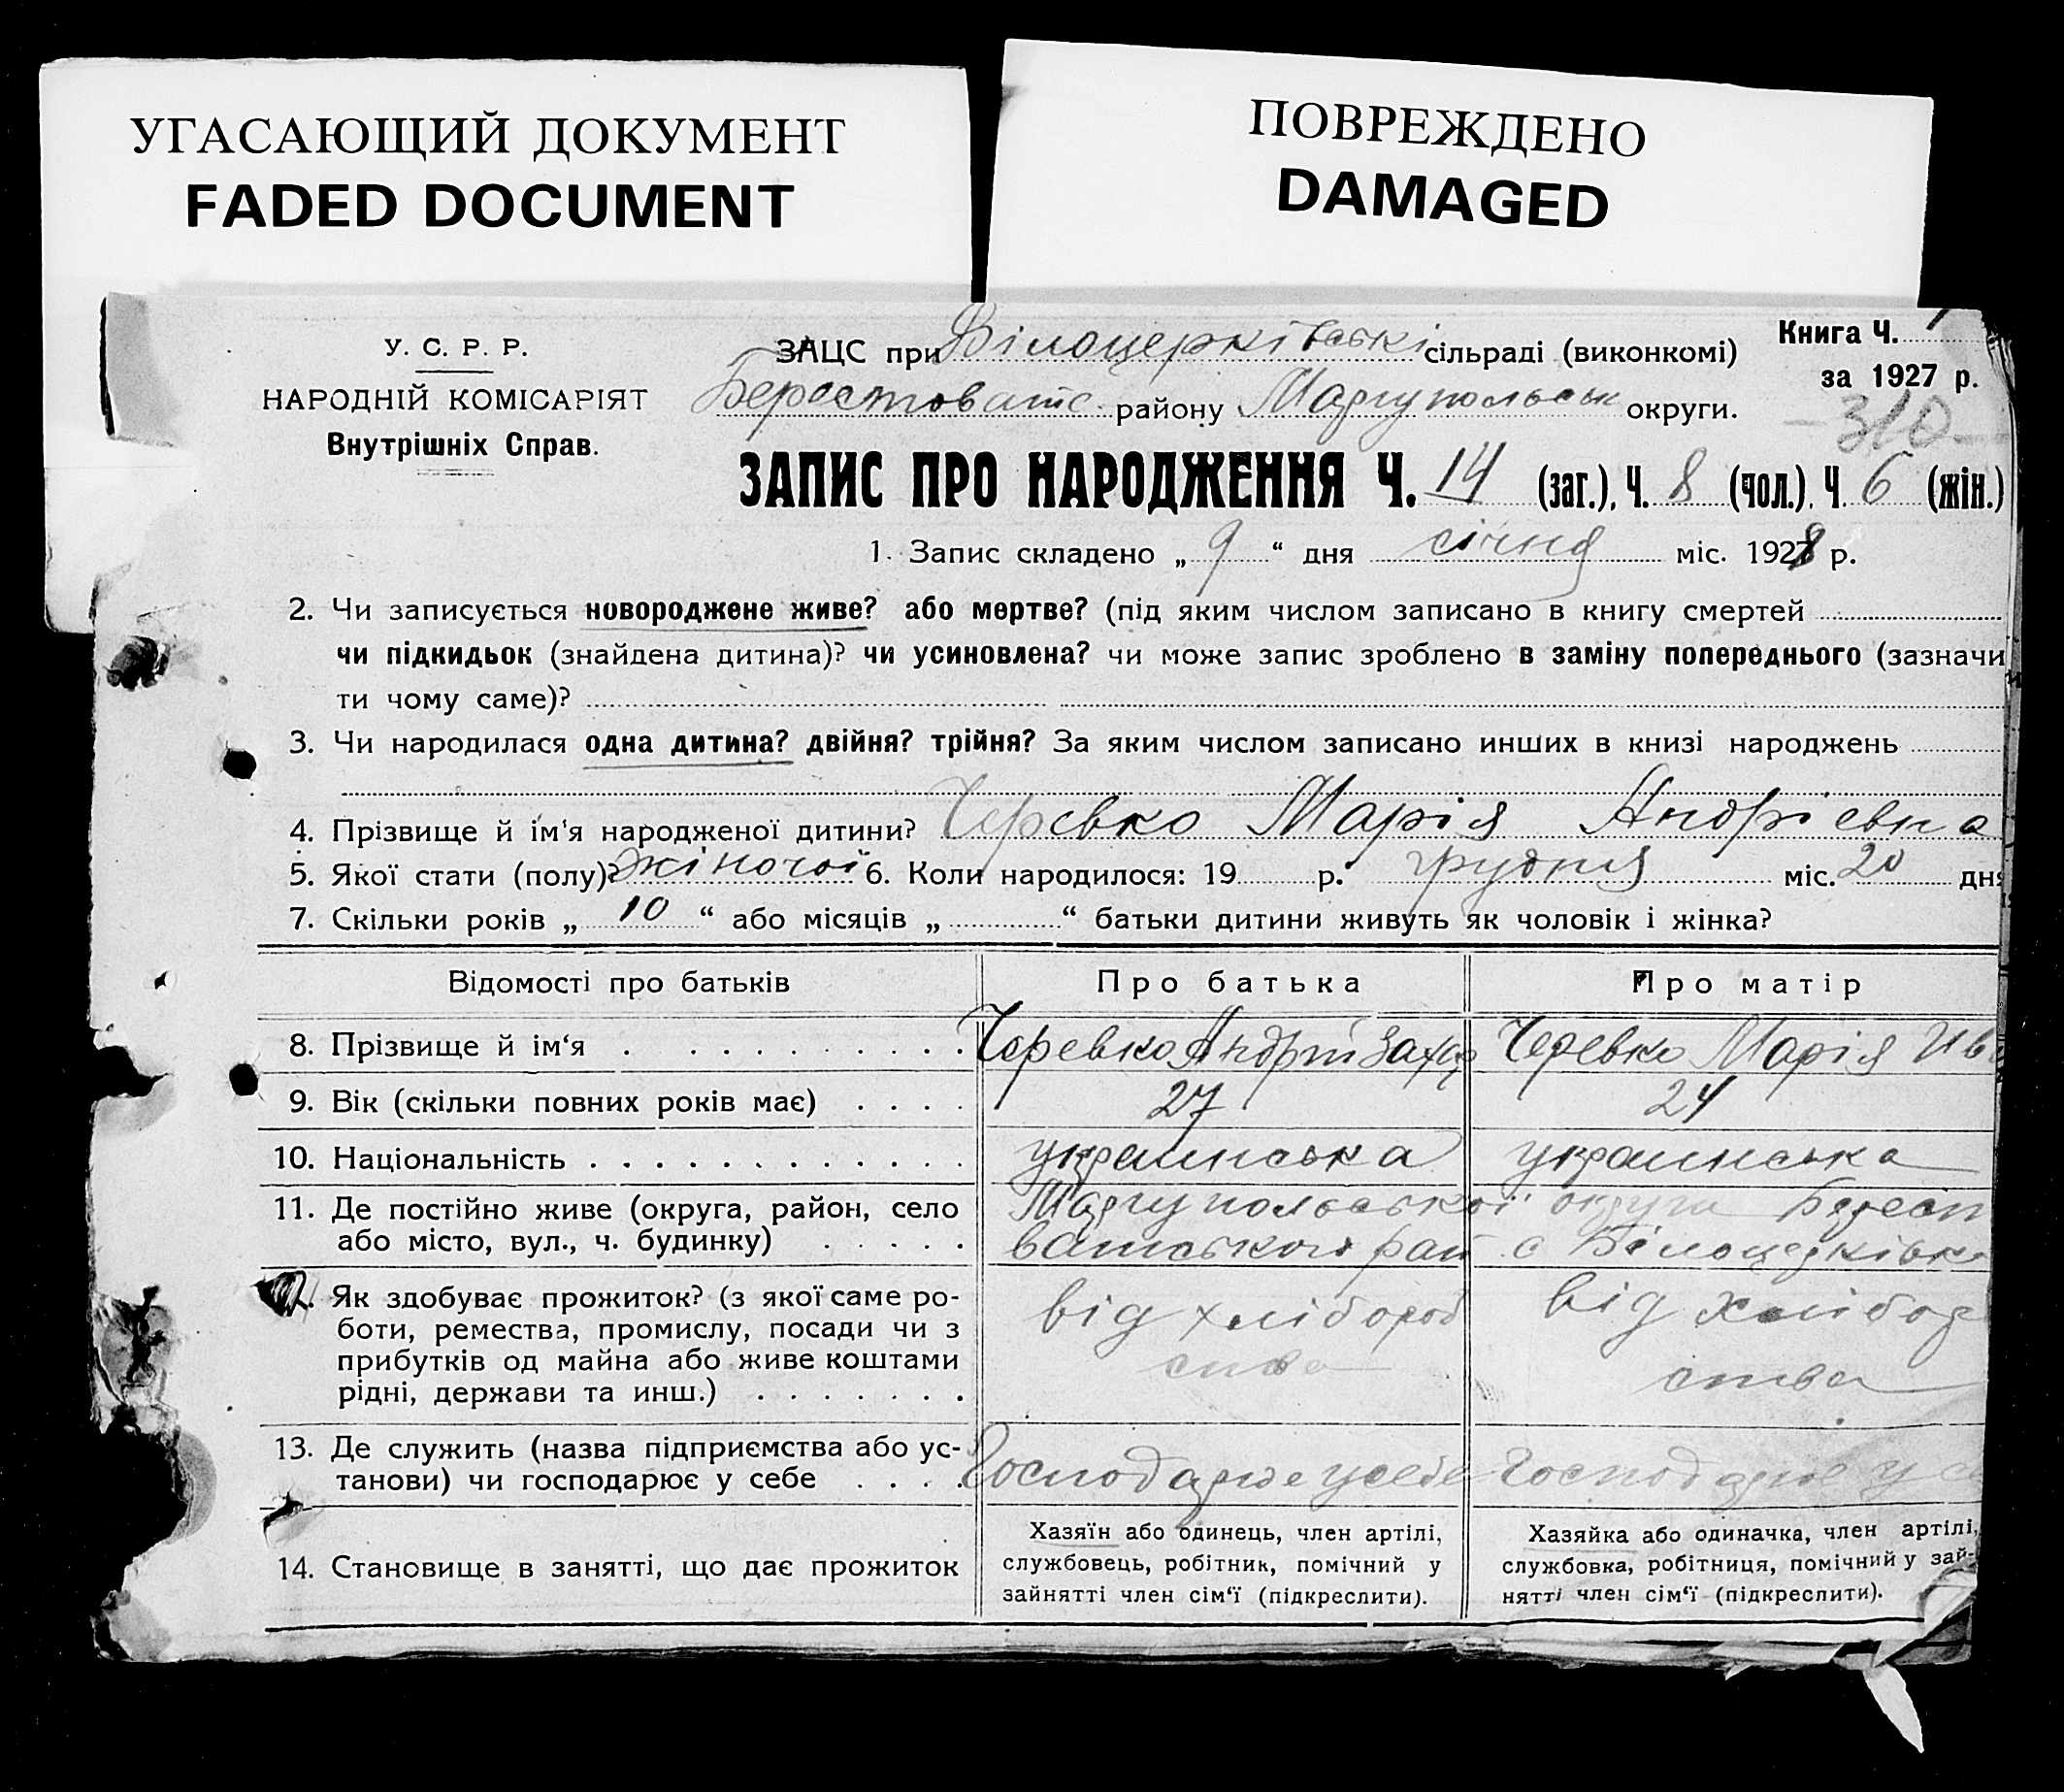 УГАСАЮЩИЙ ДОКУМЕНТ
FADED DOCUMENT
ПОВРЕЖДЕНО
DAMAGED
У. С. Р. Р.
НАРОДНІЙ КОМІСАРІЯТ
Внутрішніх Справ.
ЗАЦС при Білоцерківські сільраді (виконкомі)
Книга Ч.
за 1927 р.
Берестоватс. району Маріупольськ округи.
-310-
ЗАПИС ПРО НАРОДЖЕННЯ Ч. 14 (заг.), Ч. 8 (чол.), Ч. 6 (жін.)
1. Запис складено „ 9 “ дня січня міс. 1928 р.
2. Чи записується новороджене живе? або мертве? (під яким числом записано в книгу смертей
чи підкидьок (знайдена дитина)? чи усиновлена? чи може запис зроблено в заміну попереднього (зазначи
ти чому саме)?
3. Чи народилася одна дитина? двійня? трійня? За яким числом записано инших в книзі народжень
4. Прізвище й ім'я народженої дитини? Черевко Марія Андрієвна
5. Якої стати (полу)? жіночої 6. Коли народилося: 19 р. грудня міс. 20 дня
7. Скільки років „ 10 “ або місяців „ “ батьки дитини живуть як чоловік і жінка?
Відомості про батьків Про батька Про матір
8. Прізвище й ім‘я Черевко Андрій Захар Черевко Марія Ив
9. Вік (скільки повних років має) 27 24
10. Національність украинська украинська
11. Де постійно живе (округа, район, село Маріупольської округи Берест
або місто, вул., ч. будинку) ватського рай с Білоцерківка
Як здобуває прожиток? (з якої саме ро-
боти, ремества, промислу, посади чи з
прибутків од майна або живе коштами
рідні, держави та инш.)
від хлібороб
ства
від хлібор
ства
13. Де служить (назва підприємства або ус-
танови) чи господарює у себе Господарюе у себе Господарюе у се
14. Становище в занятті, що дає прожиток
Хазяїн або одинець, член артілі,
службовець, робітник, помічний у
зайнятті член сім‘ї (підкреслити).
Хазяйка або одиначка, член артілі,
службовка, робітниця, помічний у зай-
нятті член сім‘ї (підкреслити).